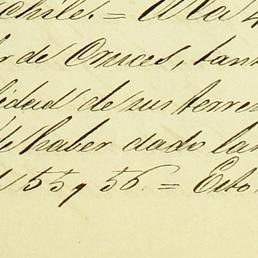 chile. = A la
de Cruces, tan
lidad de sus terre
de haber dado la
55 y 56. = Esto